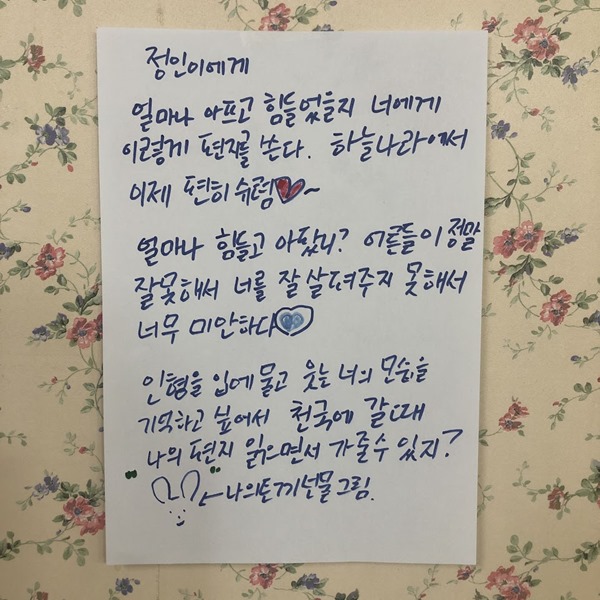 정인이에게
얼마나 아프고 힘들었을지 너에게
이렇게 편지를 쓴다. 하늘나라에서
이제 편히 쉬렴~
얼마나 힘들고 아팠니? 어른들이 정말
잘못해서 너를 잘 살펴주지 못해서
너무 미안하다
인형을 입에 물고 웃는 너의 모습을
기억하고 싶어서 천국에 갈때
나의 편지 읽으면서 가줄수 있지?
나의토끼선물그림.